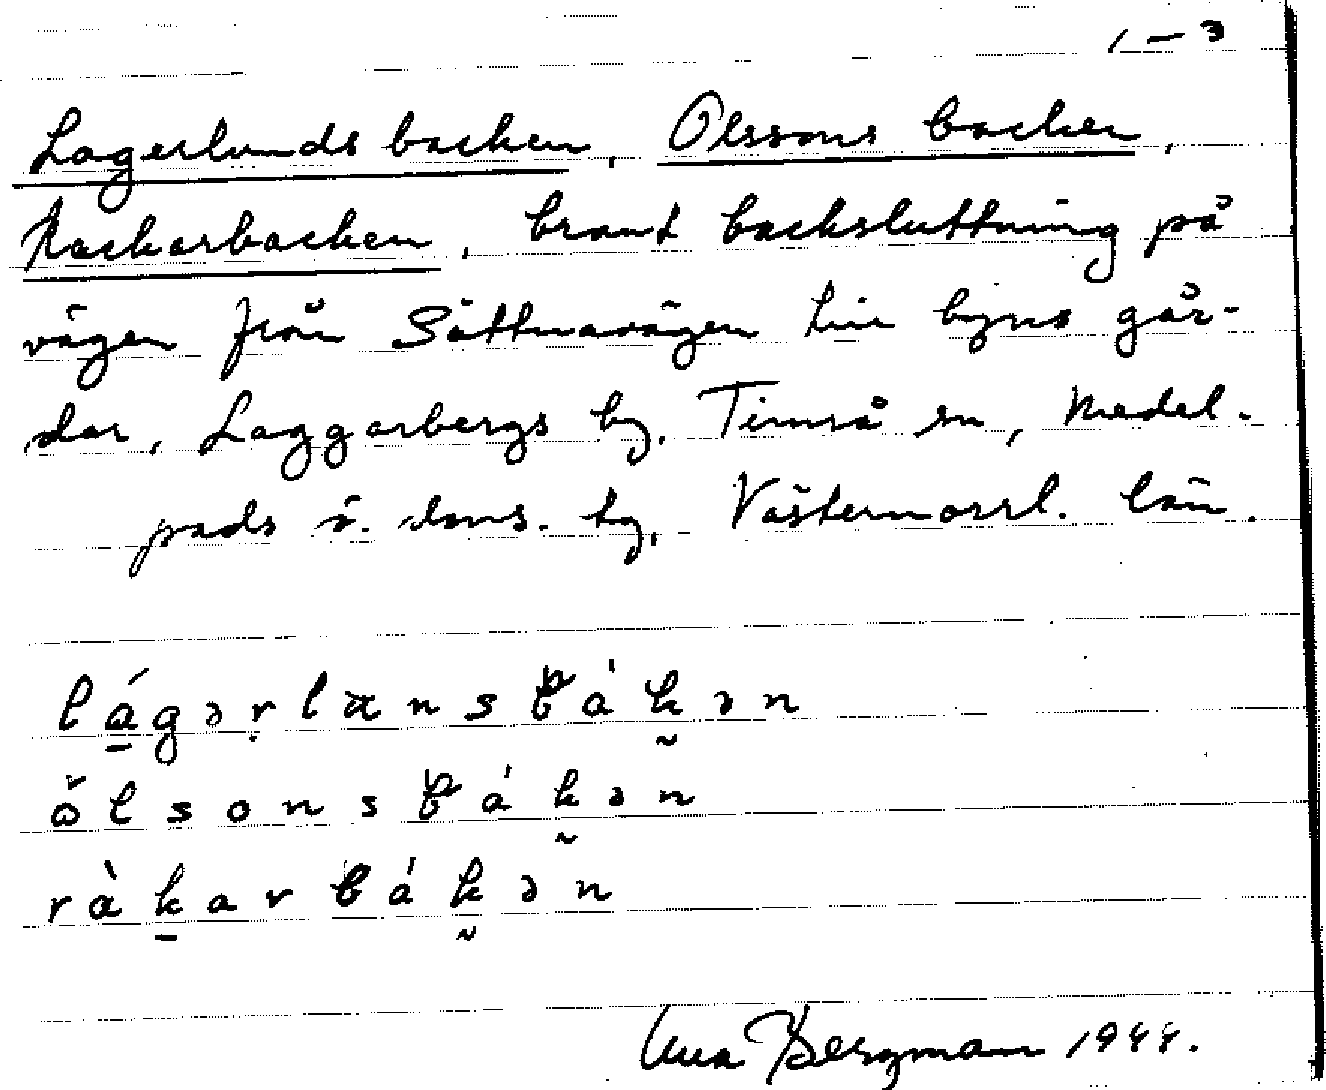 1–3
Lagerlundsbacken, Olssons backen,
Rackarbacken, brant backsluttning på
vägen från Sättnavägen till byns går-
dar, Laggarbergs by, Timrå sn, Medel-
pads ö. doms. by, Västernorrl. län.
lágərlɶnsbákən
ölsonsbákən
ràkarbákən
Bergman 1944.